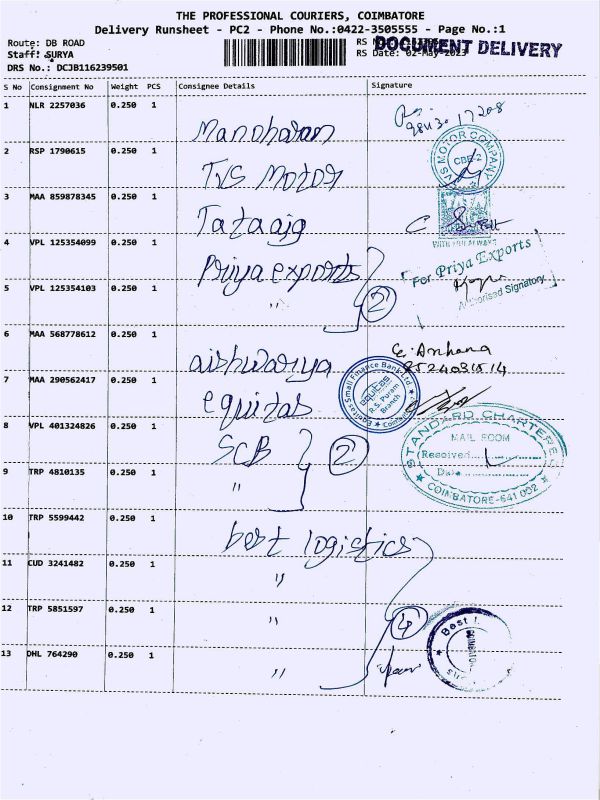 THE PROFESSIONAL COURIERS, COIMBATORE
Delivery Runsheet - PC2 - Phone No.:0422-3505555 - Page No.:1
Route: DB ROAD
DOCUMENT DELIVERY
Staff: SURYA
RS Date: 02-May-2023
DRS No.: DCJB116239501
S No Consignment No Weight PCS Consignee Details Signature
1 NLR 2257036 0.250 1 Manoharan
2 RSP 1790615 0.250 1 TVS Motor
MOTOR COMPANY
CBE-2
3 MAA 859878345 0.250 1 Tataaig
WITH YOU ALWAYS
4 VPL 125354099 0.250 1 Priya exports
For Priya Exports
Authorised Signatory
5 VPL 125354103 0.250 1 " 2
6 MAA 568778612 0.250 1 aishwariya
7 MAA 290562417 0.250 1 equitas
Equitas Small Finance Bank Ltd.
EQUITAS
R.S. Puram
Branch
8 VPL 401324826 0.250 1 SCB 2
STANDARD CHARTERED
MAIL ROOM
Received
Date
COIMBATORE-641 002
9 TRP 4810135 0.250 1 "
10 TRP 5599442 0.250 1 best logistics
11 CUD 3241482 0.250 1 "
12 TRP 5851597 0.250 1 " 4
Best
13 DHL 764290 0.250 1 "